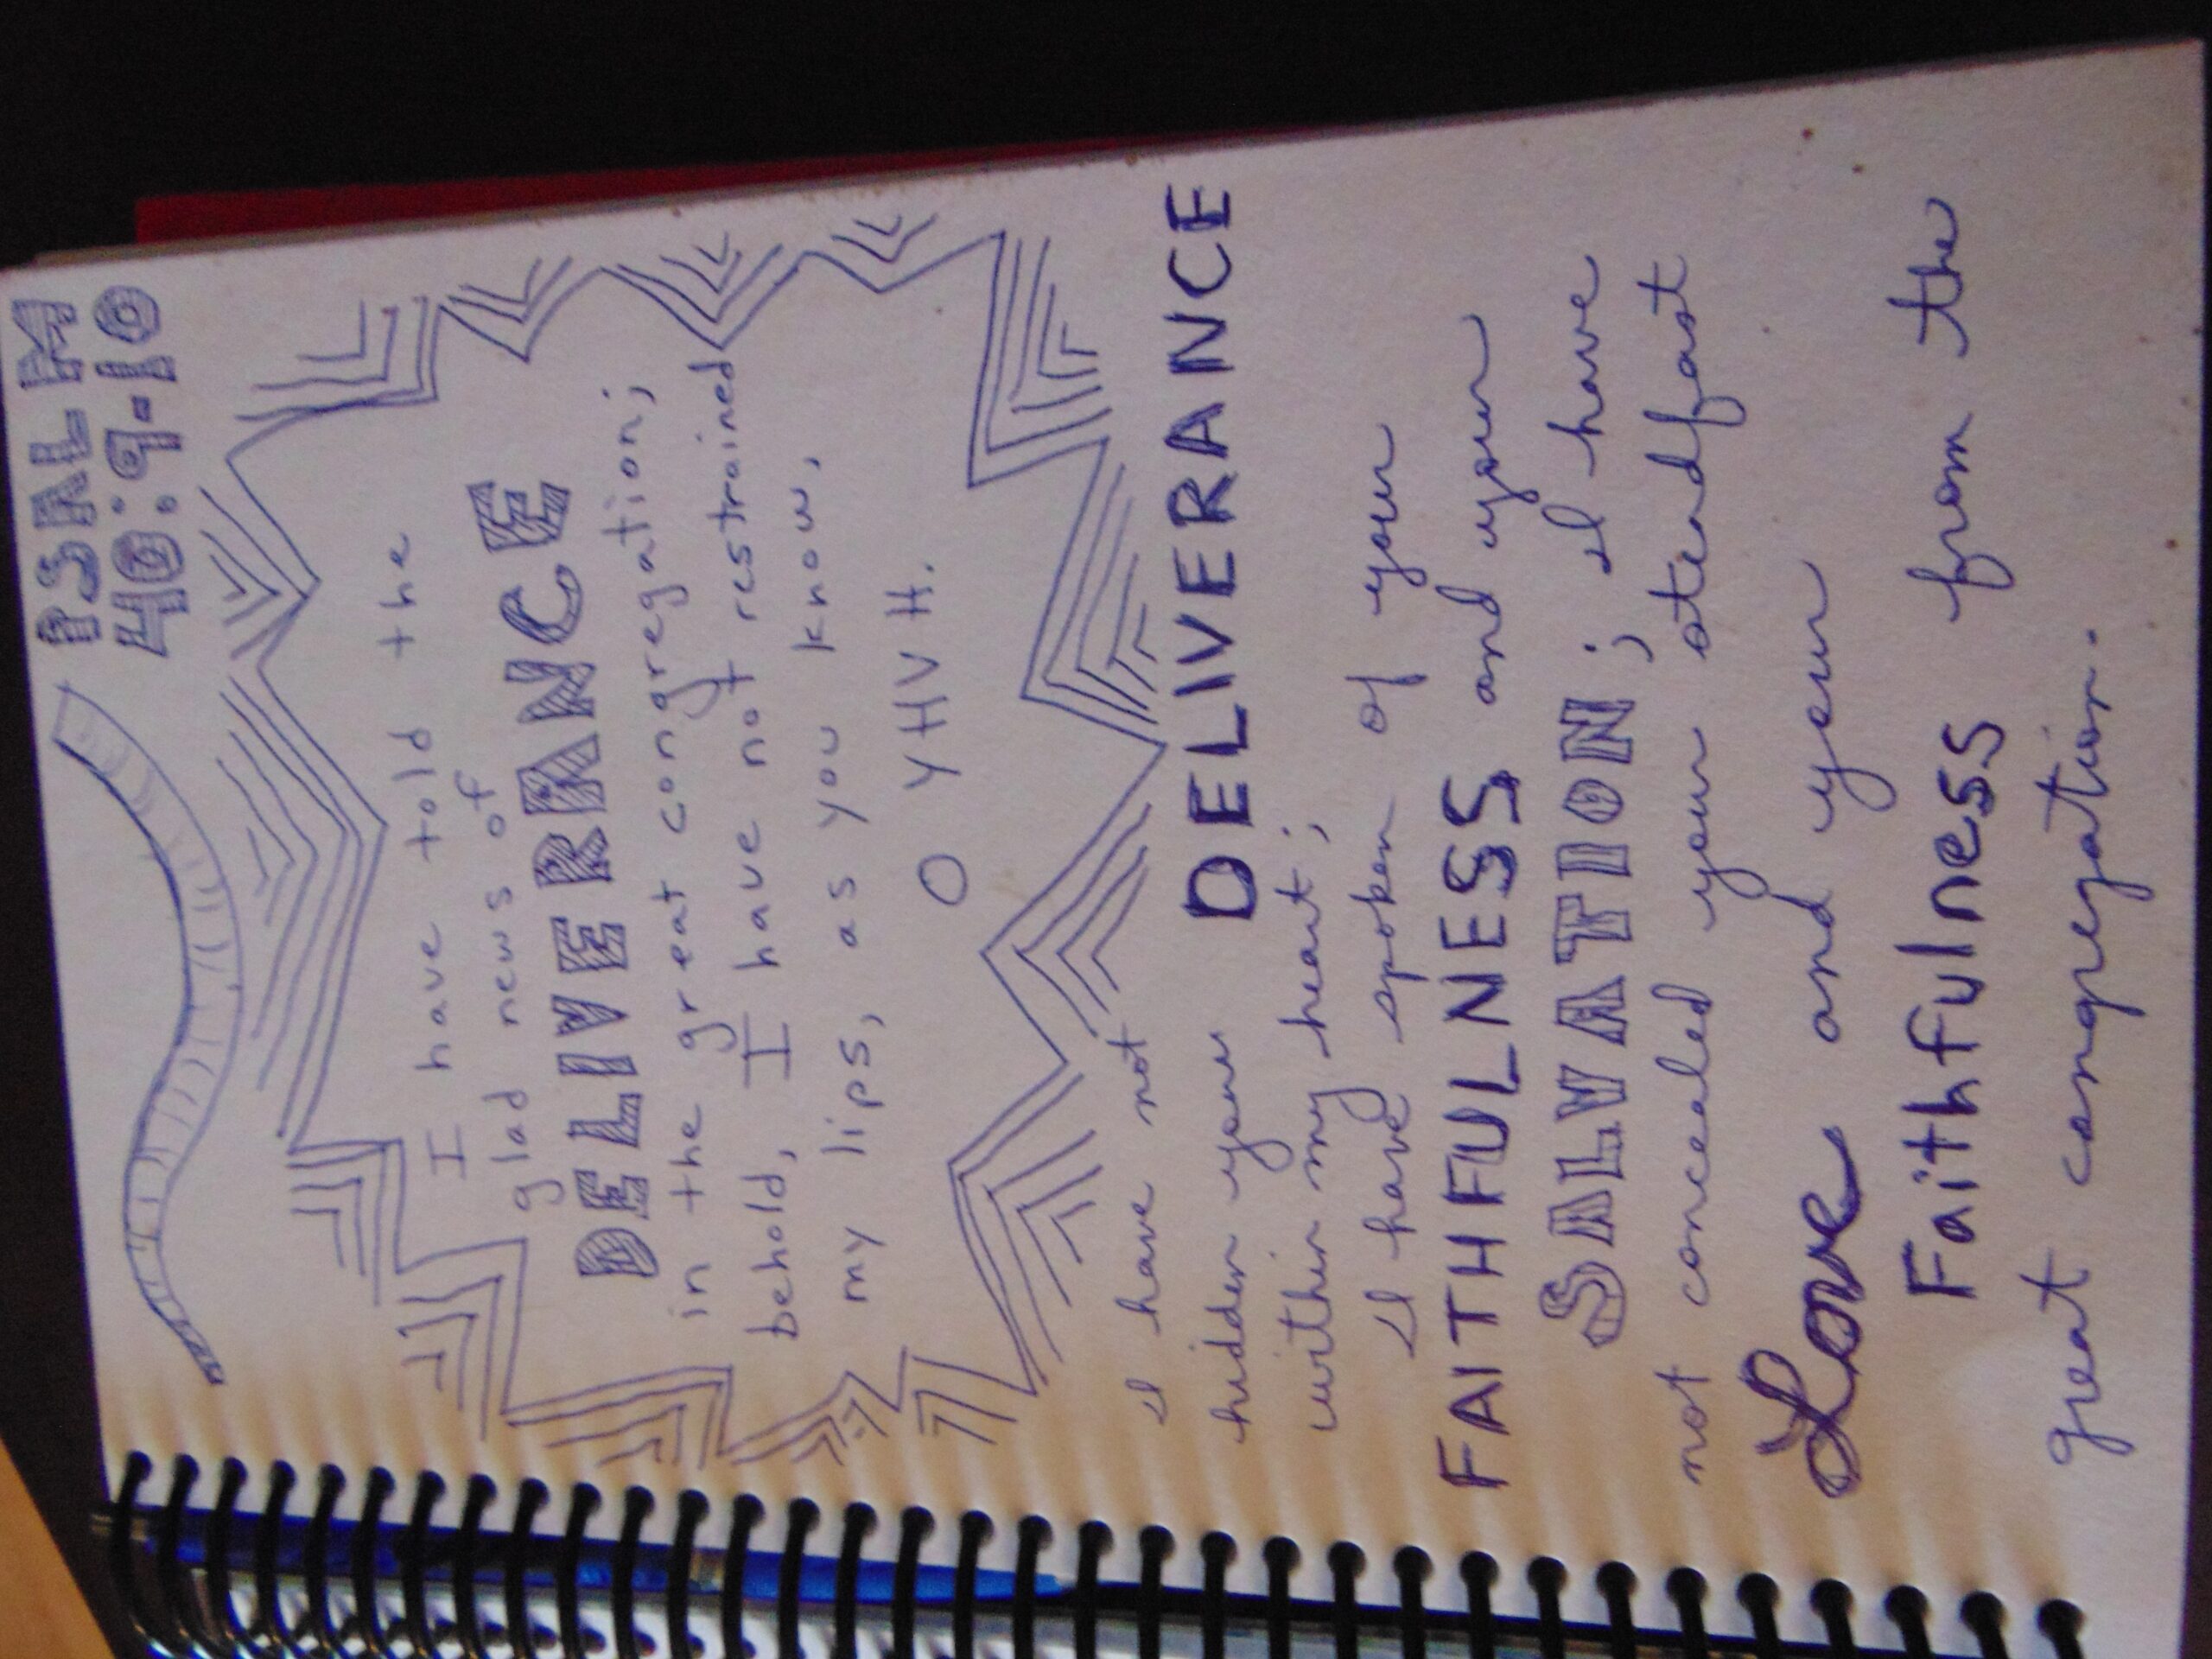 PSALM
40:9-10
I have told the
glad news of
DELIVERANCE
in the great congregation;
behold, I have not restrained
my lips, as you know,
O YHVH.
I have not
hidden your DELIVERANCE
within my heart;
I have spoken of your
FAITHFULNESS and your
SALVATION; I have
not concealed your steadfast
Love and your
Faithfulness from the
great congregation.